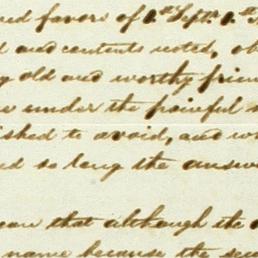 ed favors of 1st Sept. 1st
and contents noted, ob
y old and worthy frien
w under the painful n
ished to avoid, and w
ed so long the answe
ean that although the
name because the sec